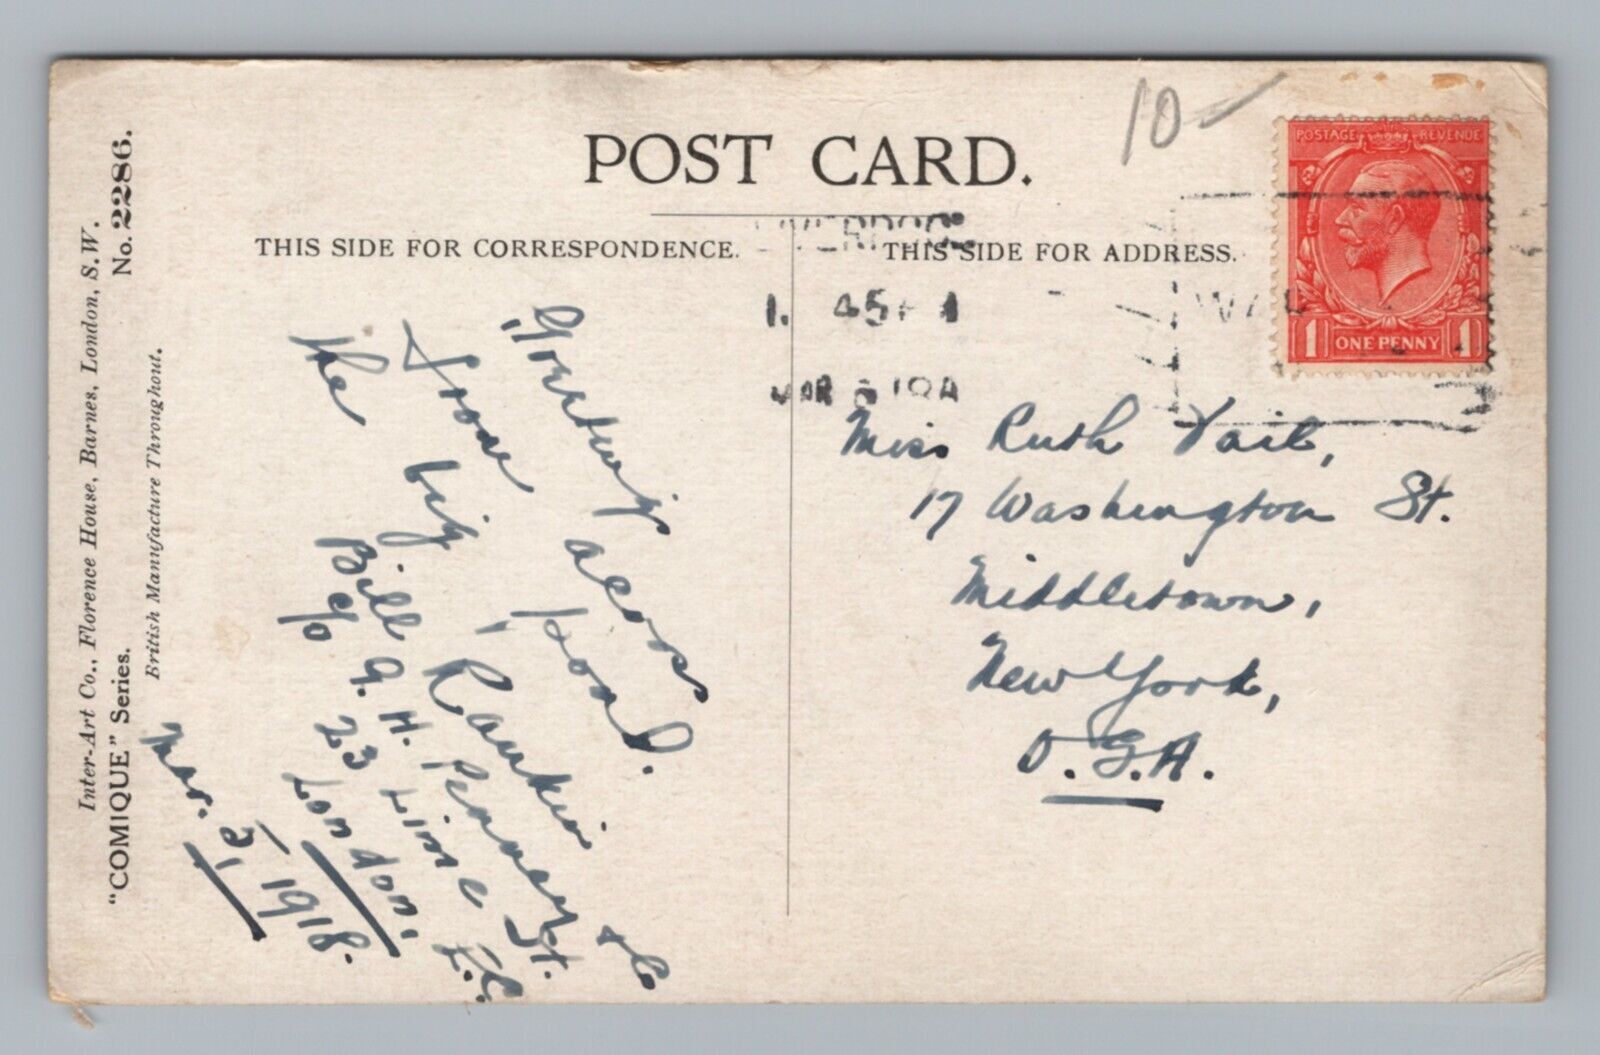 POST CARD.
10-
POSTAGE REVENUE
1 ONE PENNY 1
THIS SIDE FOR CORRESPONDENCE.
THIS SIDE FOR ADDRESS.
LIVERPOOL
1. 45 PM
MAR 5 18
Inter-Art Co., Florence House, Barnes, London, S.W.
"COMIQUE" Series. No. 2286.
British Manufacture Throughout.
Greetings
from across
the big pond.
Bill Rankin
c/o G. H. Pennay & Co
23 Lime St.
London, E.C.
Mar. 5, 1918.
Miss Ruth Vail,
17 Washington St.
Middletown,
New York,
U.S.A.